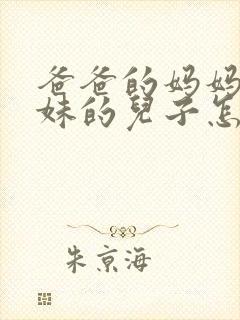 爸爸的妈妈
妹的兒子怎
朱京海